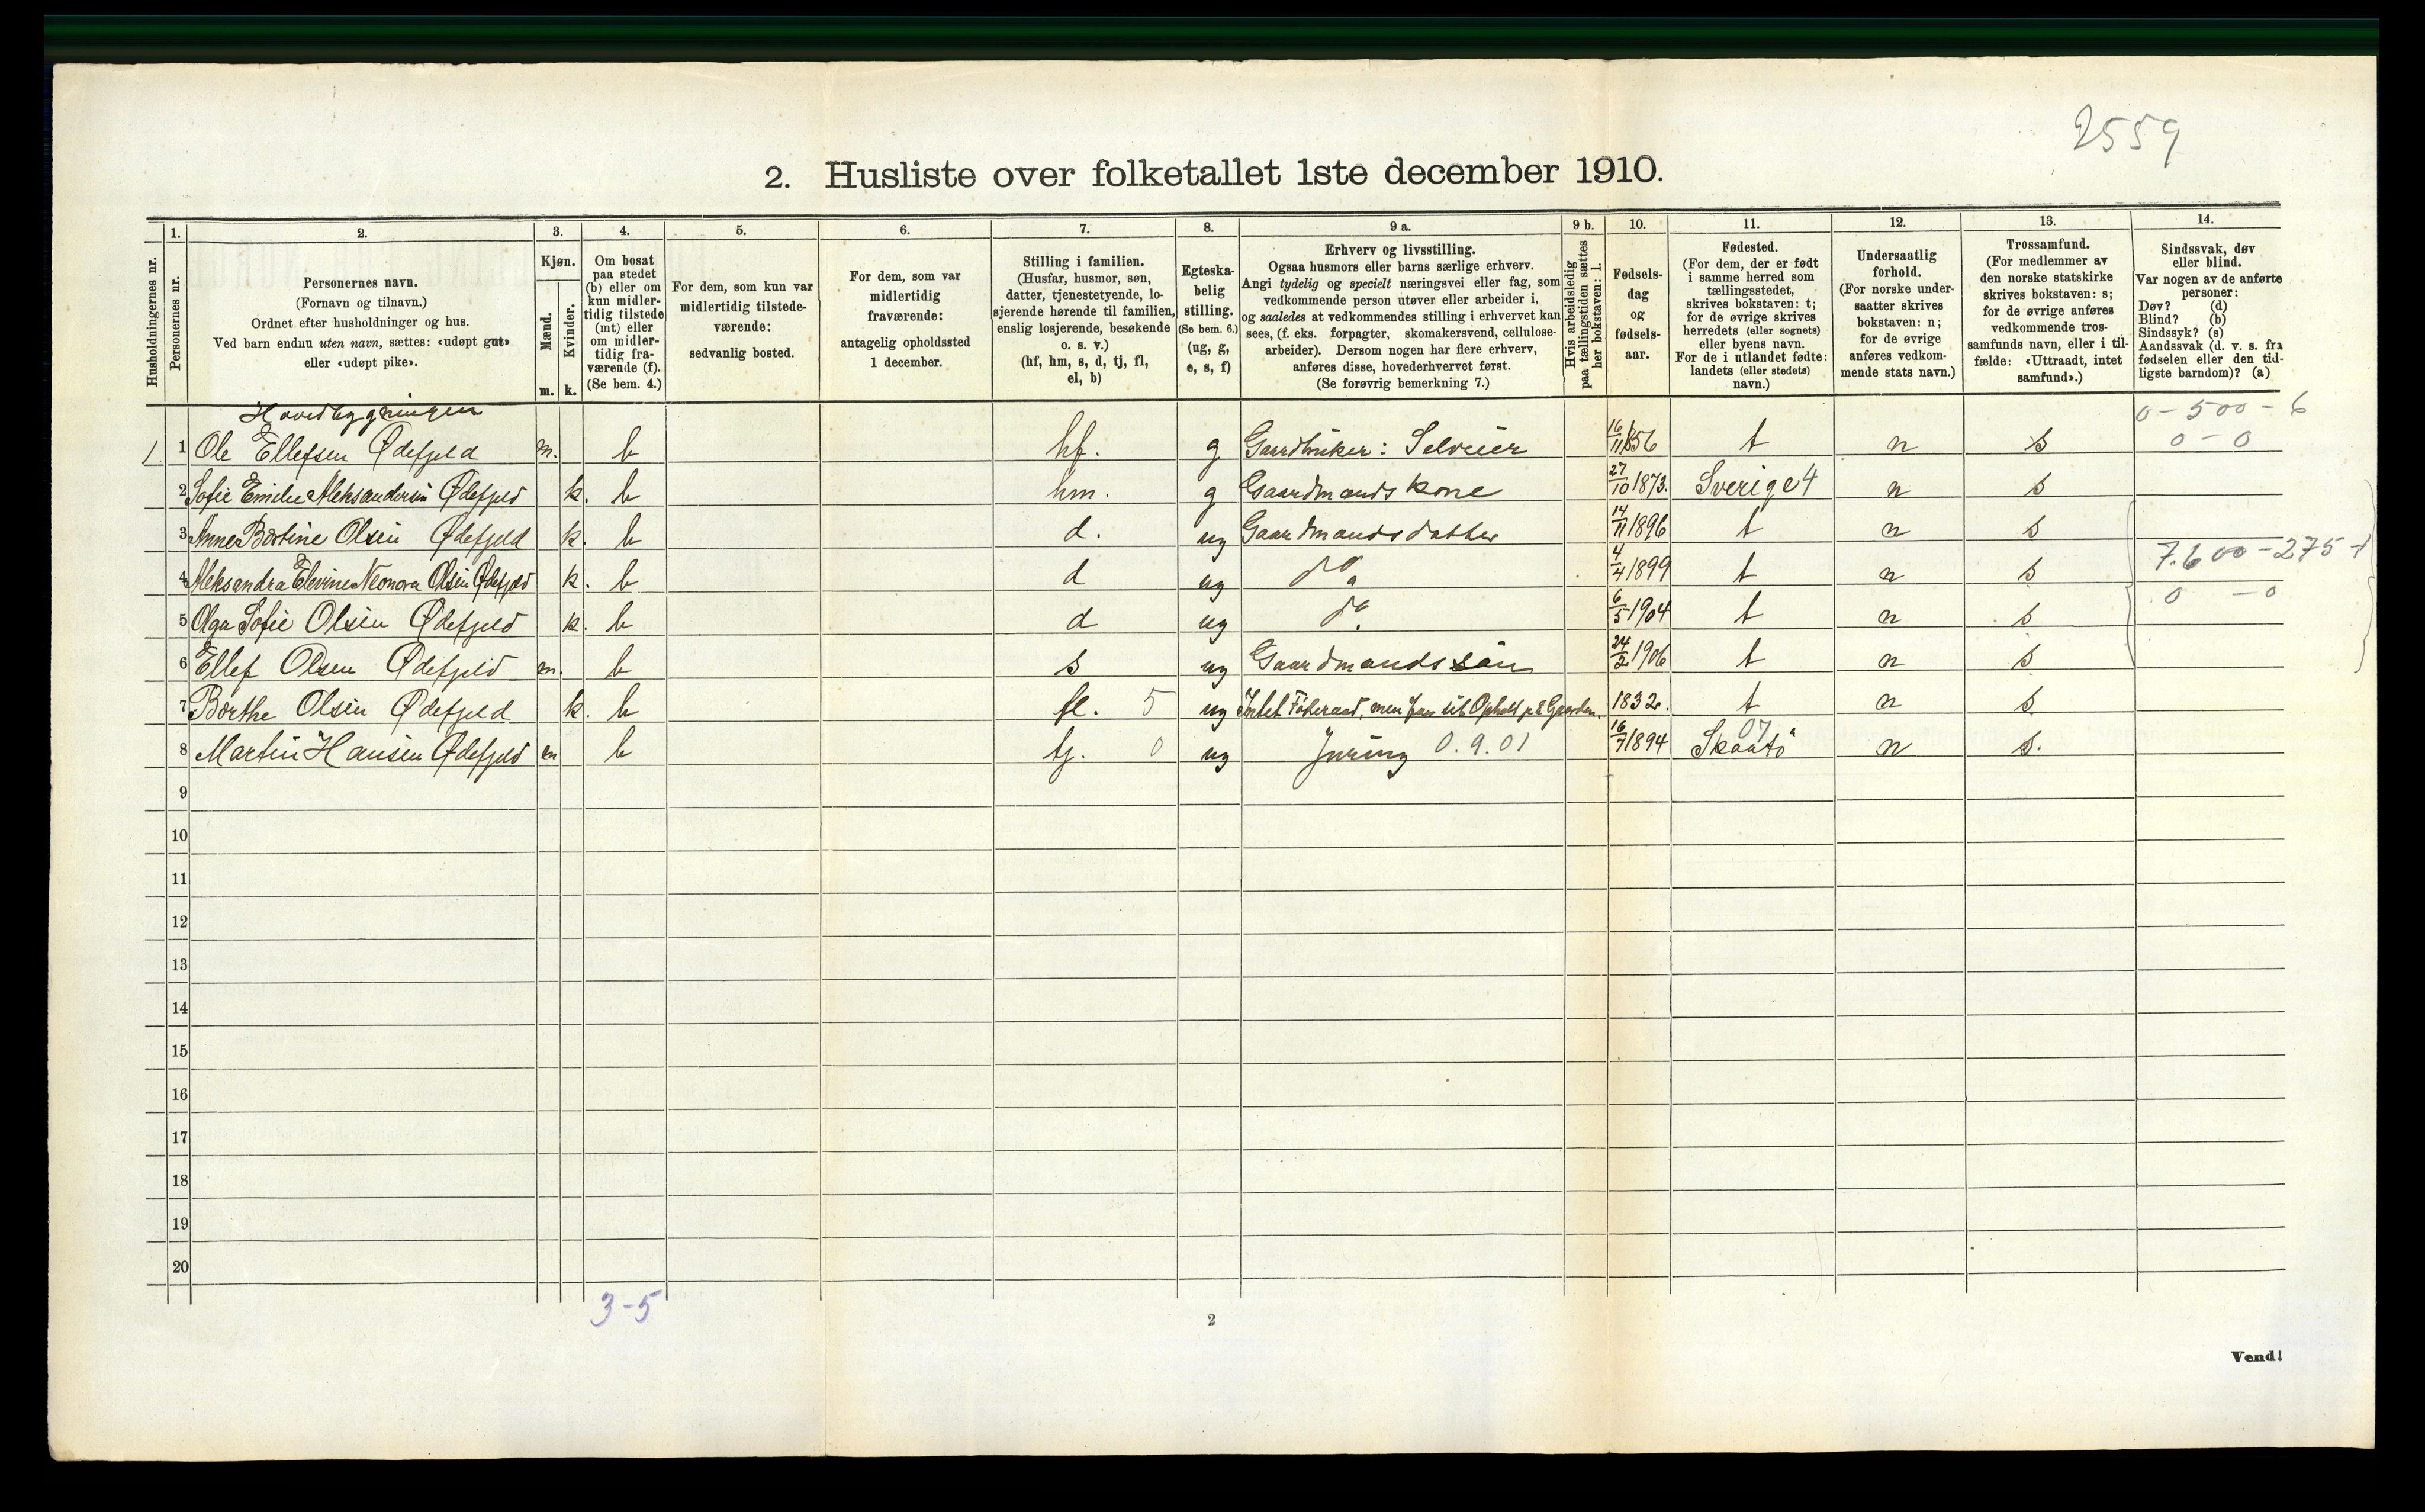 2559
2. Husliste over folketallet 1ste december 1910.
1. 2. 3. 4. 5. 6. 7. 8. 9 a. 9 b. 10. 11. 12. 13. 14.
Husholdningernes nr.
Personernes nr.
Personernes navn.
(Fornavn og tilnavn.)
Ordnet efter husholdninger og hus.
Ved barn endnu uten navn, sættes: «udøpt gut»
eller «udøpt pike».
Kjøn.
Mænd.
m.
Kvinder.
k.
Om bosat
paa stedet
(b) eller om
kun midler-
tidig tilstede
(mt) eller
om midler-
tidig fra-
værende (f).
(Se bem. 4.)
For dem, som kun var
midlertidig tilstede-
værende:
sedvanlig bosted.
For dem, som var
midlertidig
fraværende:
antagelig opholdssted
1 december.
Stilling i familien.
(Husfar, husmor, søn,
datter, tjenestetyende, lo-
sjerende hørende til familien,
enslig losjerende, besøkende
o. s. v.)
(hf, hm, s, d, tj, fl,
el, b)
Egteska-
belig
stilling.
(Se bem. 6.)
(ug, g,
e, s, f)
Erhverv og livsstilling.
Ogsaa husmors eller barns særlige erhverv.
Angi tydelig og specielt næringsvei eller fag, som
vedkommende person utøver eller arbeider i,
og saaledes at vedkommendes stilling i erhvervet kan
sees, (f. eks. forpagter, skomakersvend, cellulose-
arbeider). Dersom nogen har flere erhverv,
anføres disse, hovederhvervet først.
(Se forøvrig bemerkning 7.)
Hvis arbeidsledig
paa tællingstiden sættes
her bokstaven: l.
Fødsels-
dag
og
fødsels-
aar.
Fødested.
(For dem, der er født
i samme herred som
tællingsstedet,
skrives bokstaven: t;
for de øvrige skrives
herredets (eller sognets)
eller byens navn.
For de i utlandet fødte:
landets (eller stedets)
navn.)
Undersaatlig
forhold.
(For norske under-
saatter skrives
bokstaven: n;
for de øvrige
anføres vedkom-
mende stats navn.)
Trossamfund.
(For medlemmer av
den norske statskirke
skrives bokstaven: s;
for de øvrige anføres
vedkommende tros-
samfunds navn, eller i til-
fælde: «Uttraadt, intet
samfund».)
Sindssvak, døv
eller blind.
Var nogen av de anførte
personer:
Døv? (d)
Blind? (b)
Sindssyk? (s)
Aandssvak (d. v. s. fra
fødselen eller den tid-
ligste barndom)? (a)
Hovedbygningen 0-500-6
1 1 Ole Ellefsen Ødefjeld m. b hf. g Gaardbruker: Selveier 16/11 1856 t n s 0-0
2 Sofie Emelie Aleksandersen Ødefjeld k. b hm. g Gaardmandskone 27/10 1873. Sverige 4 n s
3 Anne Bertine Olsen Ødefjeld k. b d. ug Gaardmandsdatter 14/11 1896 t n s
4 Aleksandra Elevine Neonora Olsen Ødefjeld k. b d ug do 4/4 1899 t n s 7.600-275-1
5 Olga Sofie Olsen Ødefjeld k. b d ug do. 6/5 1904 t n s 0-0
6 Ellef Olsen Ødefjeld m. b s ug Gaardmandssøn 24/2 1906 t n s
7 Børthe Olsen Ødefjeld k. b fl. 5 ug Intet Føderaad, men har sit Ophold på Gaarden. 1832. t n s
8 Martin Hansen Ødefjeld m b tj. 0 ug 0.9.01 16/7 1894 Skaatö 07 n s.
9
10
11
12
13
14
15
16
17
18
19
20
3-5
2
Vend!